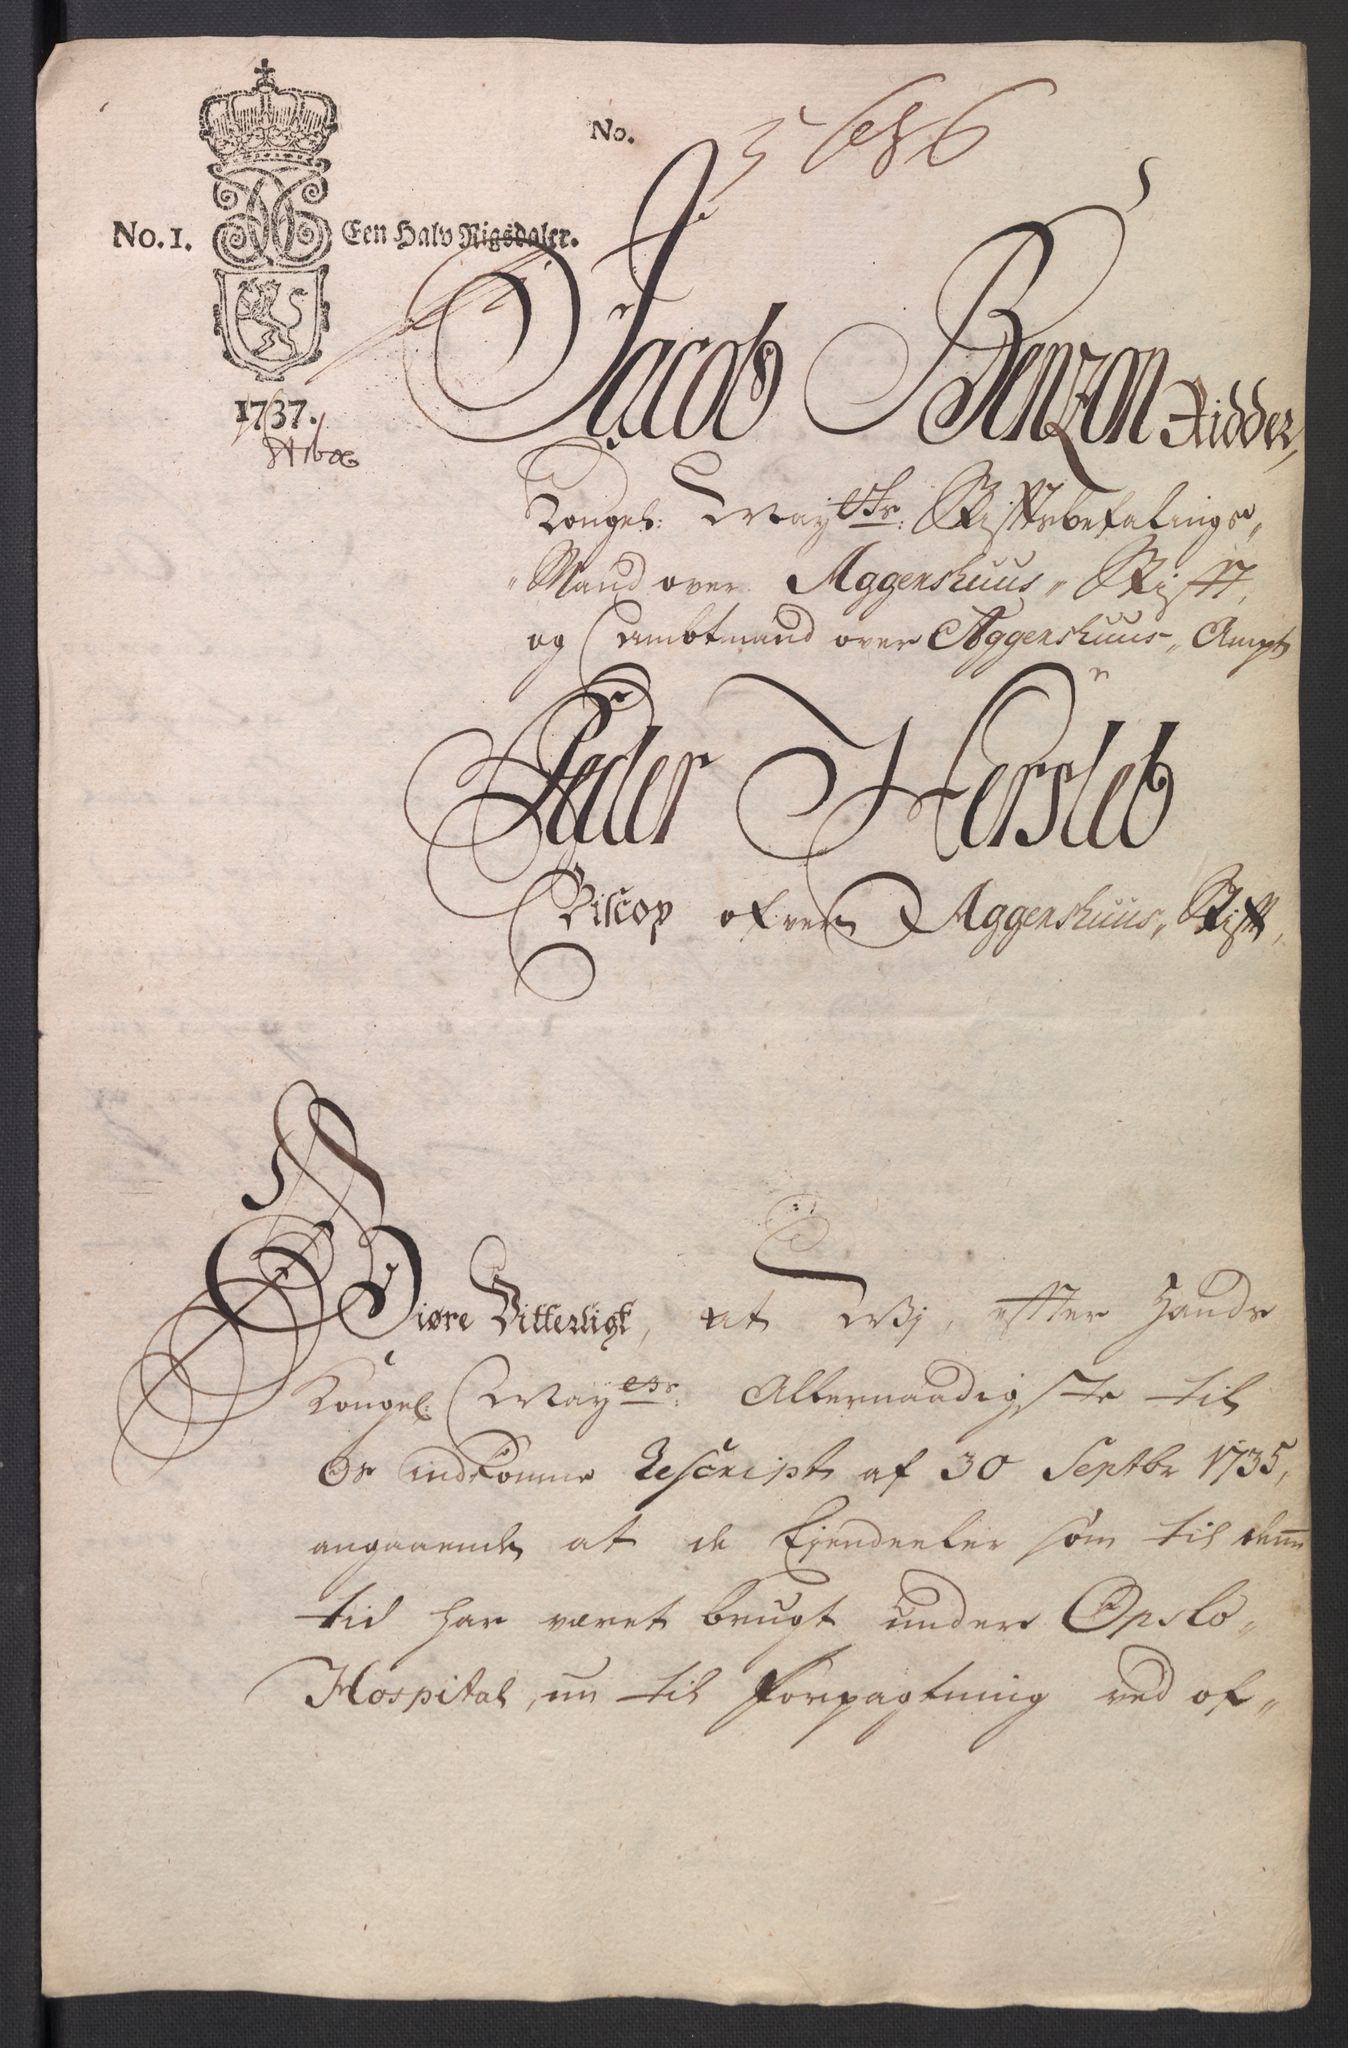 No.
No. 1.
Een Halv Rigsdaler.
1737.
Jacob Benzon Ridder,
Kongel: Mayts: Stiftsbefalings-
Mand over Aggershuus- Stift,
og Ambtmand over Aggershuus- Ampt
Peder Hersleb
Biscop ofver Aggershuus- Stift,
Giøre Vitterligt, at Wj, efter Hands
Kongel: Mayts: Allernaadigste til
Os indkomne Rescript af 30 Septbr 1735,
angaaende at de Ejendeeler som til denn
tid har været brugt under Opslo-
Hospital, nu til Forpagtning ved of-